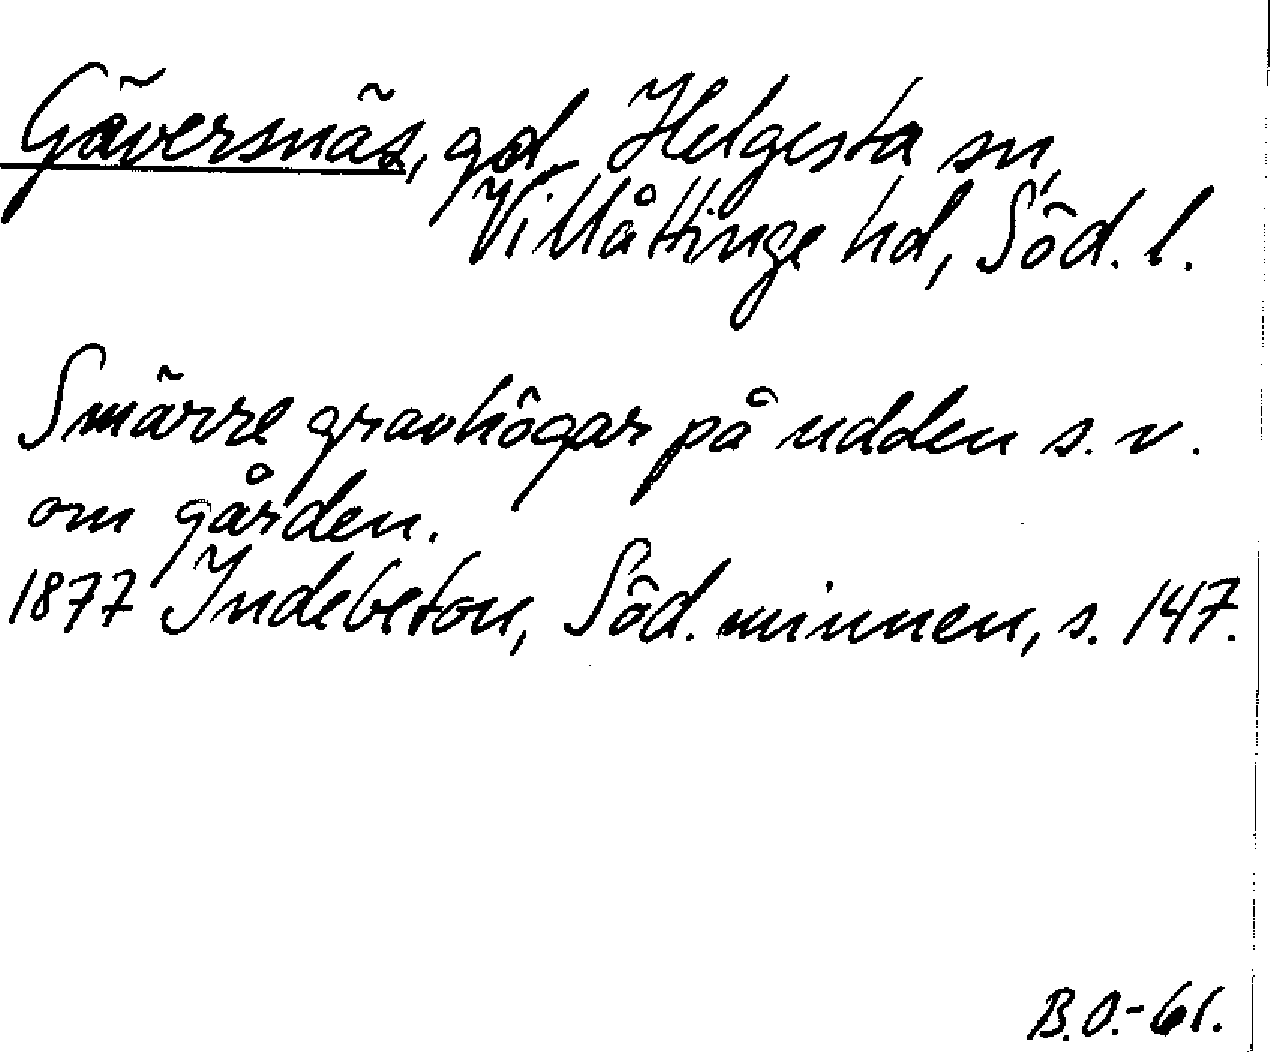 Gäversnäs, gd, Helgesta sn,
Villåttinge hd, Söd. l.
Smärre gravhögar på udden s. v.
om gården.
1877 Indebetou, Söd. minnen, s. 147.
B.O.-61.